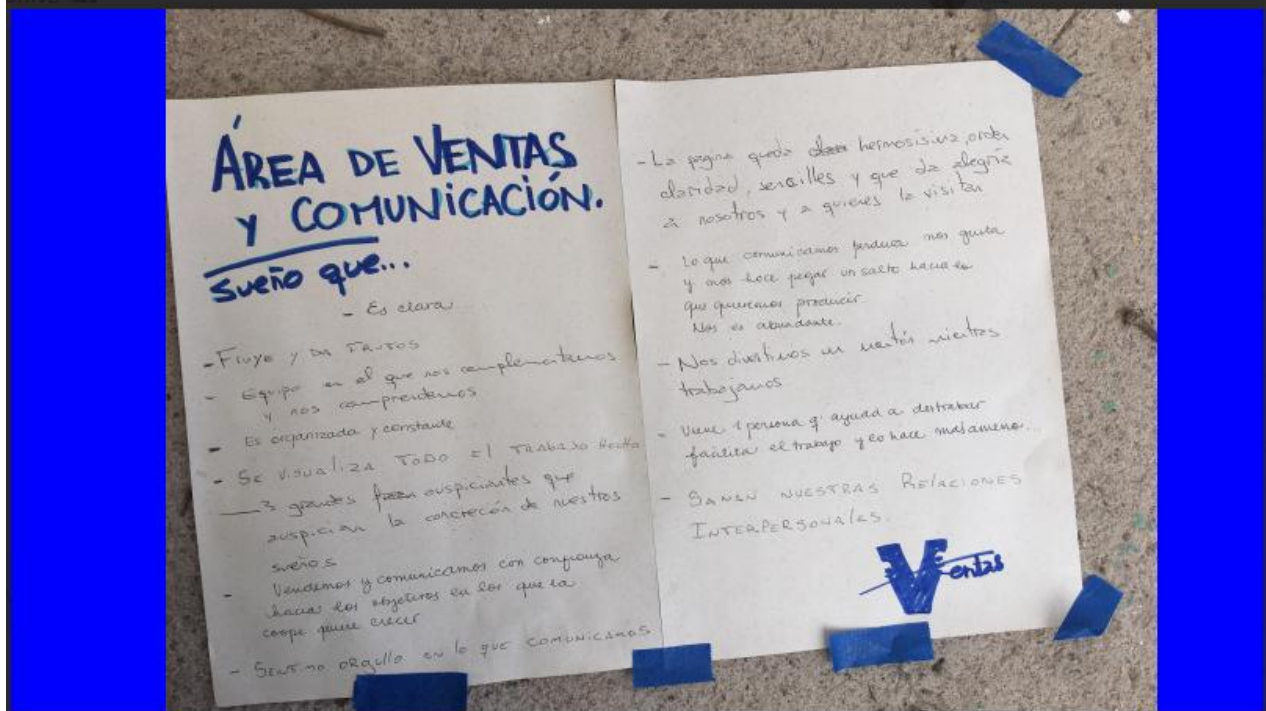 ÁREA DE VENTAS
Y COMUNICACIÓN.
Sueño que...
- Es clara
- Fluye y da frutos
- Equipo en el que nos complementamos
y nos comprendemos
- Es organizada y constante
- Se visualiza todo el trabajo hecho
3 grandes auspiciantes que
auspician la concreción de nuestros
sueños
- Vendemos y comunicamos con confianza
hacia los objetivos en los que la
coope quiere crecer
- orgullo en lo que comunicamos
- La pagina queda hermosisima, orden
claridad, sencilles y que da alegría
a nosotros y a quienes la visitan
- Lo que comunicamos produce nos gusta
y nos hace pegar un salto hacia lo
que queremos producir.
Nos es abundante.
- Nos divertimos un montón mientras
trabajamos
- Viene 1 persona q' ayuda a destrabar
facilita el trabajo y lo hace mas ameno...
- Sanan nuestras Relaciones
Interpersonales.
Ventas